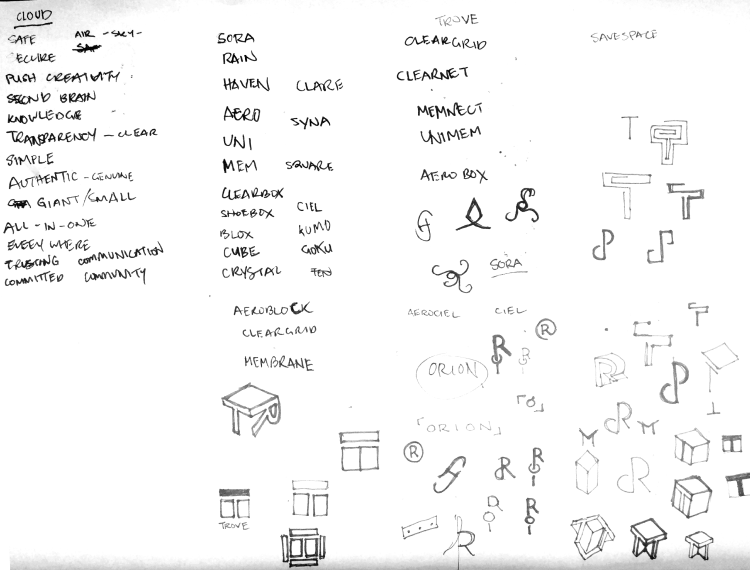 CLOUD
SAFE AIR - SKY -
SECURE
PUSH CREATIVITY
SECOND BRAIN
KNOWLEDGE
TRANSPARENCY - CLEAR
SIMPLE
AUTHENTIC - GENUINE
GIANT/SMALL
ALL - IN - ONE
EVERYWHERE
TRUSTING COMMUNICATION
COMMITTED COMMUNITY
SORA
RAIN
HAVEN CLARE
AERO SYNA
UNI
MEM SQUARE
CLEARBOX
SHOEBOX CIEL
BLOX KUMO
CUBE GOKU
CRYSTAL
AEROBLOCK
CLEARGRID
MEMBRANE
TROVE
TROVE
CLEARGRID
CLEARNET
MEMNECT
UNIMEM
AERO BOX
SORA
AEROCIEL CIEL
R
ORION
「ORION」
R
SAVESPACE
T